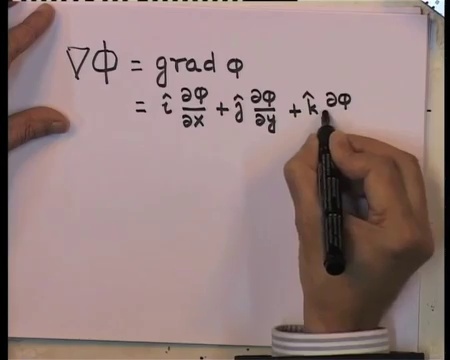 ∇Φ = grad φ
= î ∂φ/∂x + ĵ ∂φ/∂y + k̂ ∂φ